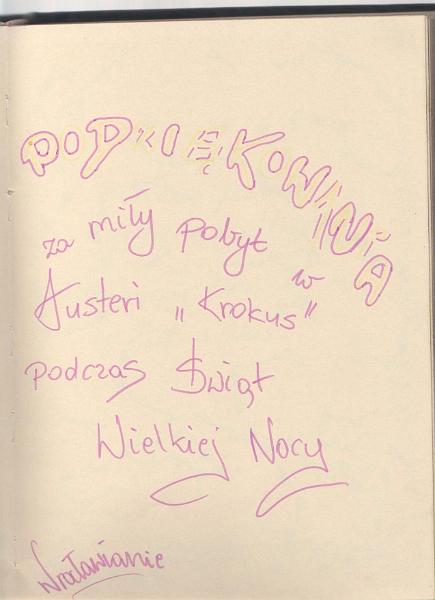 PODZIĘKOWANIA
za miły pobyt
w
Austeri „Krokus”
podczas Świąt
Wielkiej Nocy
Wrocławianie